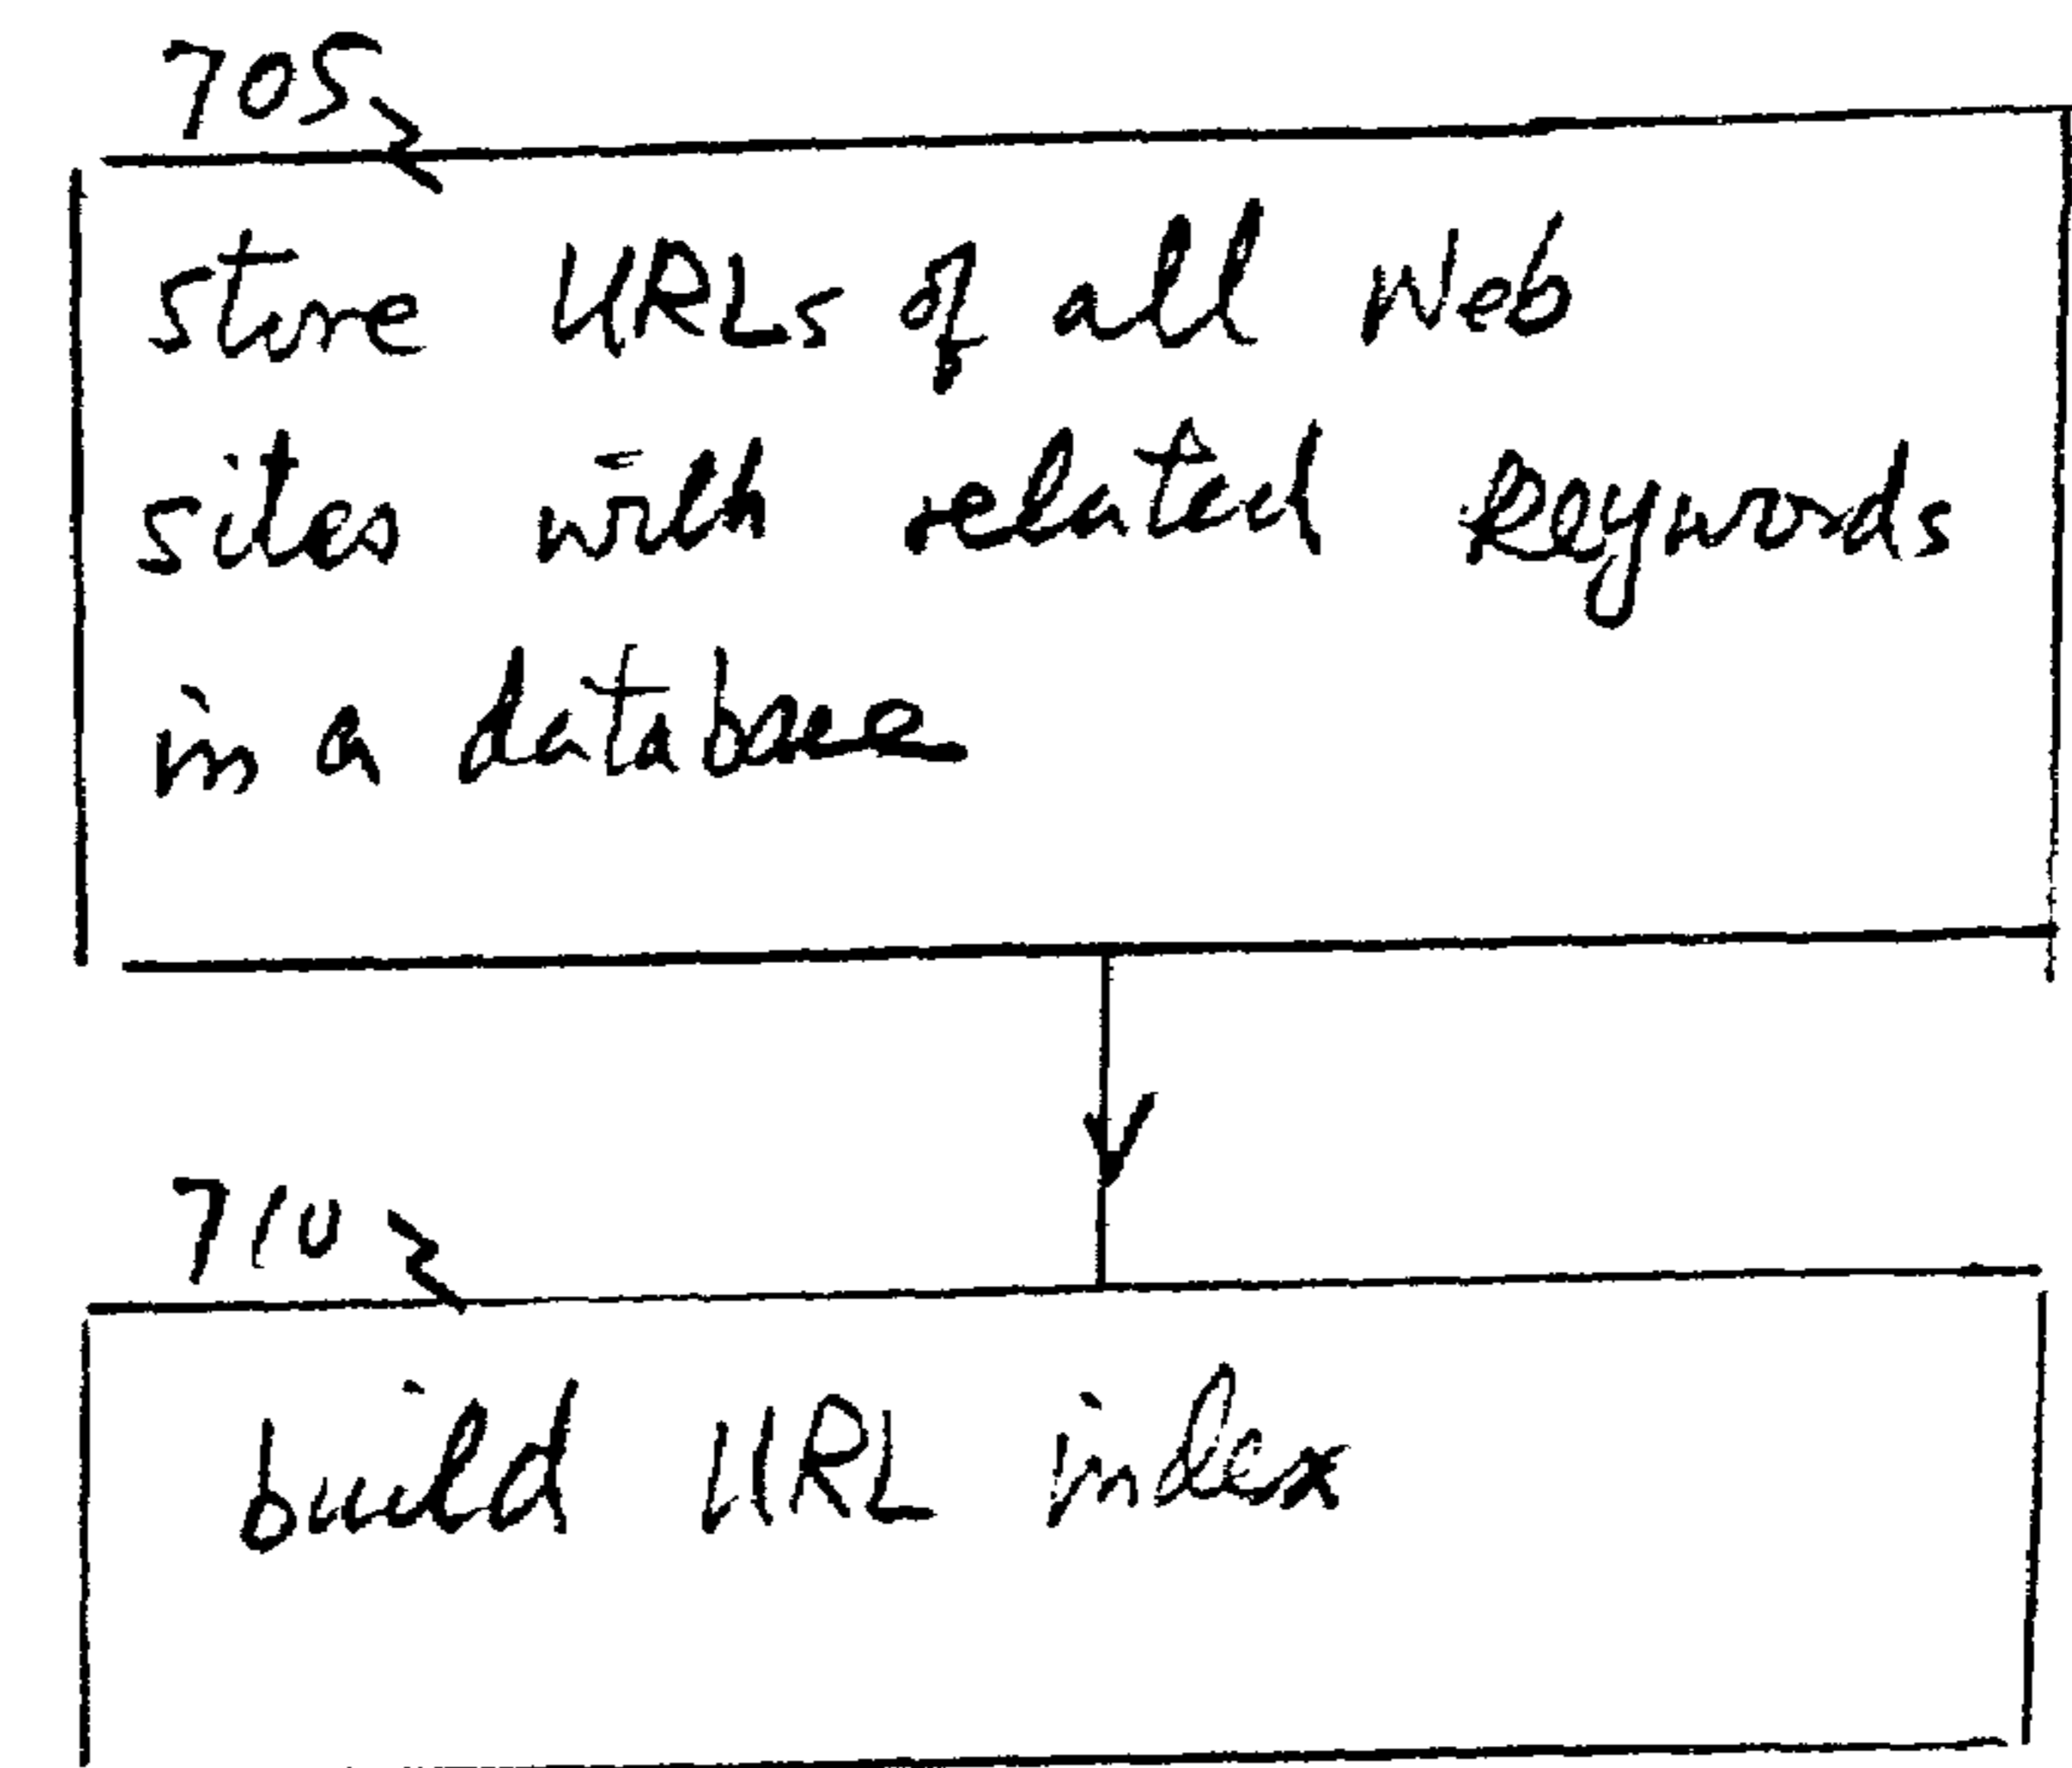 705
store URLs of all Web
sites with related keywords
in a database
710
build URL index